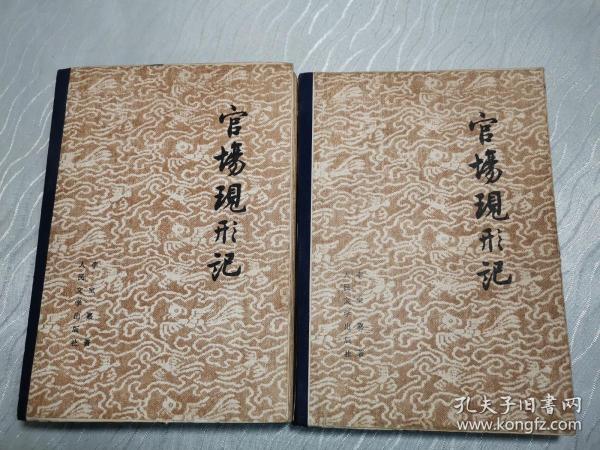 官場現形记
李宝嘉著
人民文学出版社
官場現形记
李宝嘉著
人民文学出版社
孔夫子旧书网
www.kongfz.com